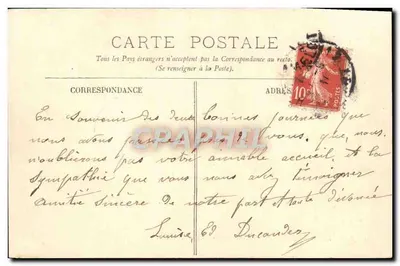 CARTE POSTALE
Tous les Pays étrangers n'acceptent pas la Correspondance au recto
(Se renseigner à la Poste).
CORRESPONDANCE
ADRES
10
En souvenir des deux bonnes journées que
nous avons passées chez vous, que, nous
n'oublierons pas votre aimable accueil, et la
sympathie que vous nous avez témoigner
Amitié sincère de notre part et toute dévouée
Louise Ed
CPARAMA